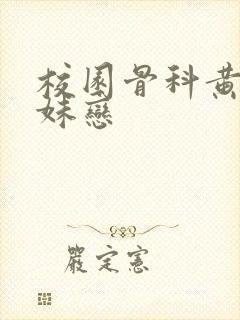 校園骨科黃
妹戀
嚴定憲